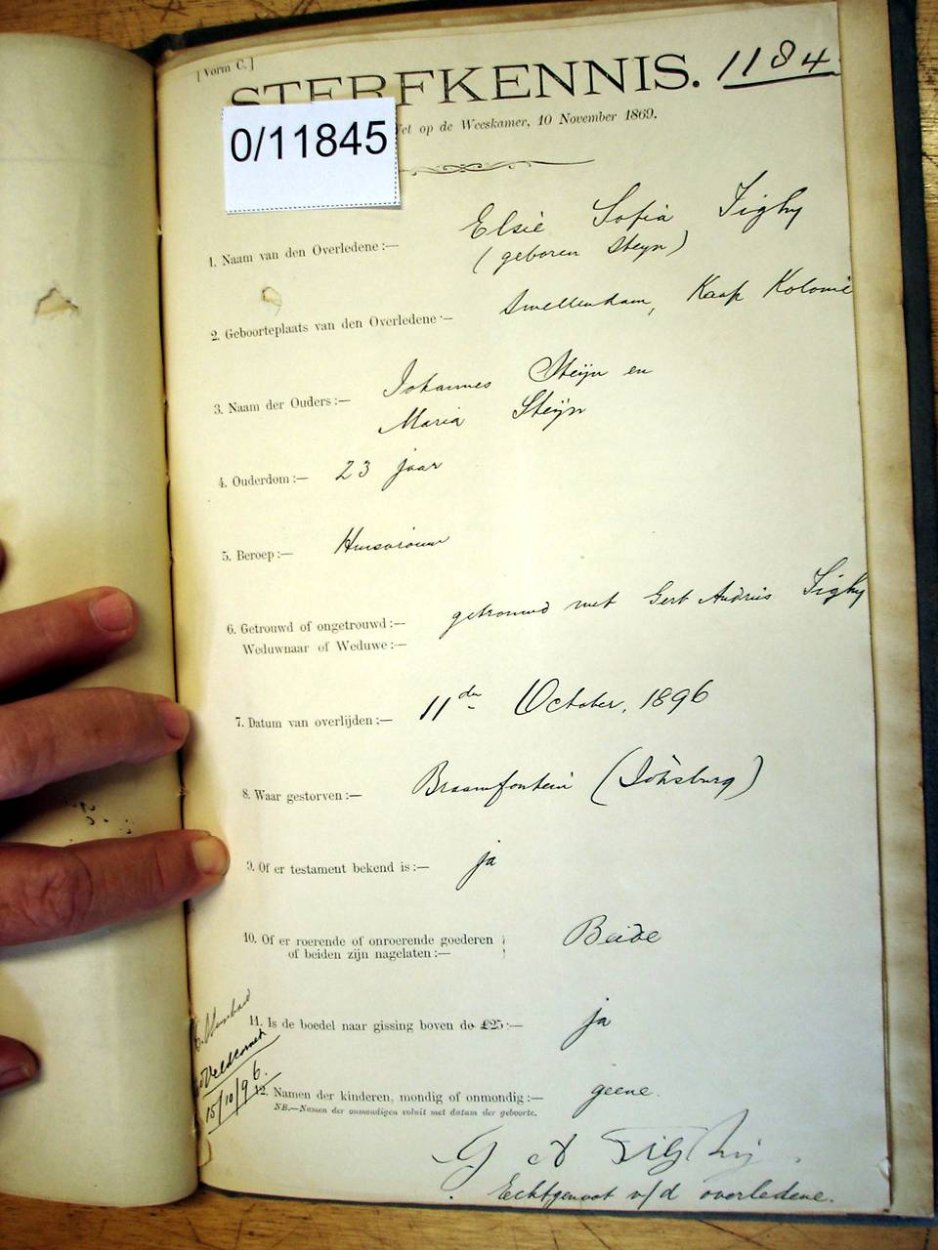 [Vorm C.]
STERFKENNIS. 1184
0/11845
Wet op de Weeskamer, 10 November 1869.
1. Naam van den Overledene :— Elsie Sofia Tighy
(geboren Steyn)
2. Geboorteplaats van den Overledene :— Swellendam, Kaap Kolonie
3. Naam der Ouders :— Johannes Steijn en
Maria Steijn
4. Ouderdom :— 23 jaar
5. Beroep :— Huisvrouw
6. Getrouwd of ongetrouwd :— getrouwd met Gert Andries Tighy
Weduwnaar of Weduwe :—
7. Datum van overlijden :— 11de October, 1896
8. Waar gestorven :— Braamfontein (Joh'sburg)
9. Of er testament bekend is :— ja
10. Of er roerende of onroerende goederen } Beide
of beiden zijn nagelaten :—
11. Is de boedel naar gissing boven de £25 :— ja
12. Namen der kinderen, mondig of onmondig :— geene.
NB.—Namen der onmondigen voluit met datum der geboorte.
Veldcornet
15/10/96.
G A Tighy
Echtgenoot v/d overledene.